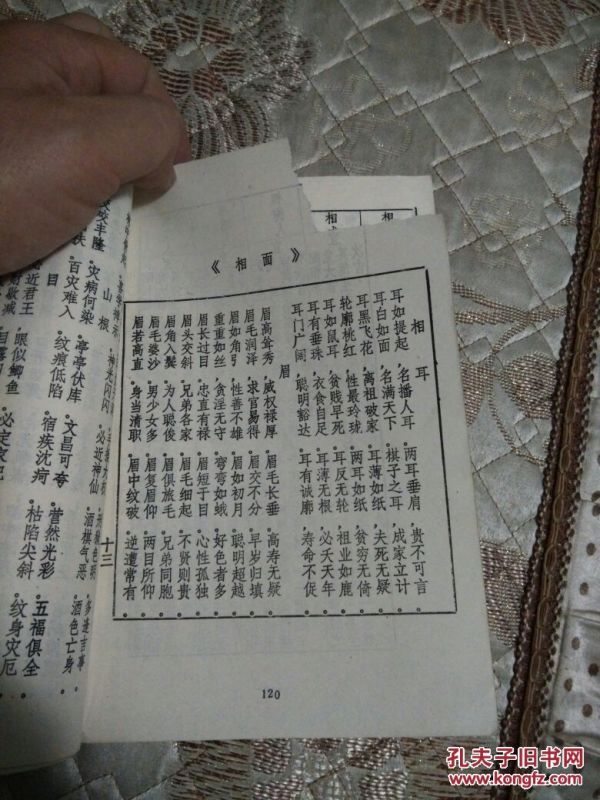 《相面》
相耳
耳如提起，名播人耳。两耳垂肩，贵不可言。
耳白如面，名满天下。棋子之耳，成家立计。
耳黑飞花，离祖破家。耳薄如纸，夭死无疑。
轮廓桃红，性最玲珑。两耳如纸，贫穷无倚。
耳如鼠耳，贫贱早死。耳反无轮，祖业如鹿。
耳有垂珠，衣食自足。耳薄无根，必夭天年。
耳门广阔，聪明豁达。耳有诚廓，寿命不促。
眉
眉高耸秀，威权禄厚。眉毛长垂，高寿无疑。
眉毛润泽，求官易得。眉交不分，早岁归填。
眉如角弓，性善不雄。眉如初月，聪明超越。
重重如丝，贪淫无守。弯弯如蛾，好色者多。
眉长过目，忠直有禄。眉短于目，心性孤独。
眉头交斜，兄弟各家。眉毛细起，不贤则贵。
眉角入鬓，为人聪俊。眉俱旅毛，兄弟同胞。
眉毛婆沙，男少女多。眉复眉仰，两目所仰。
眉若高直，身当清职。眉中纹破，逆遭常有。
120
十三
山根
灾病何染。亭亭伏库，必近神仙。
百灾难入。纹痕低陷，酒棋气恶，多逢言事
文昌可夸。营然光彩，酒色亡身。
目
宿疾沈疴。枯陷尖斜，五福俱全。
近君王。眼似鲫鱼，必定家肥。
纹身灾厄。
孔夫子旧书网
www.kongfz.com